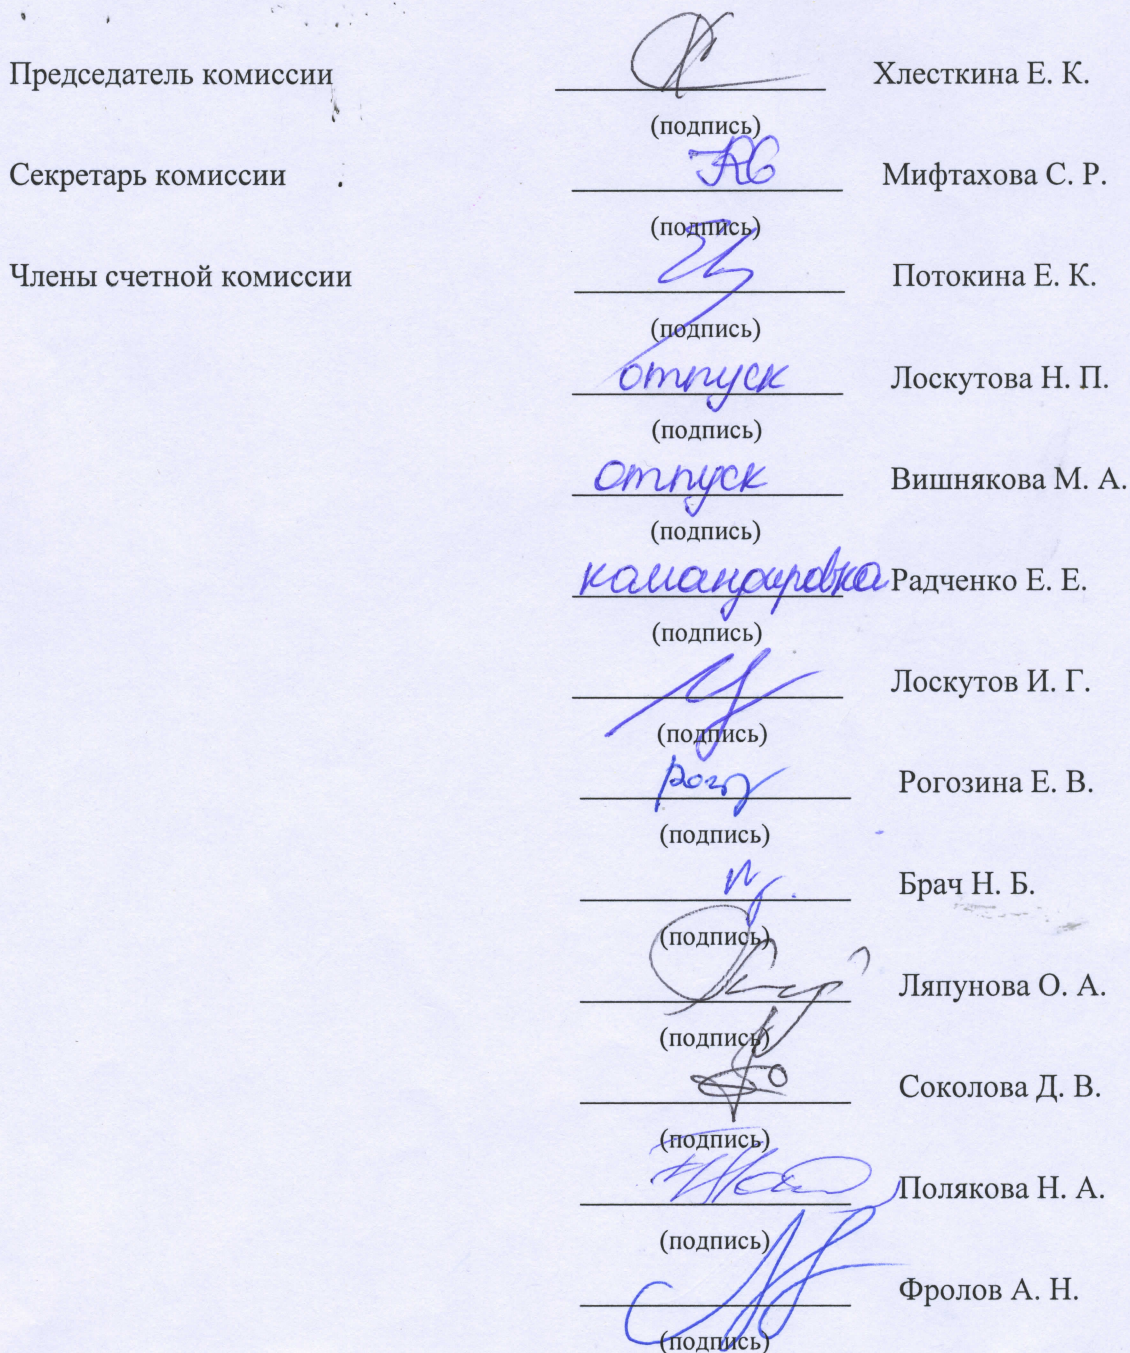 Председатель комиссии Хлесткина Е. К.
(подпись)
Секретарь комиссии Мифтахова С. Р.
(подпись)
Члены счетной комиссии Потокина Е. К.
(подпись)
отпуск Лоскутова Н. П.
(подпись)
отпуск Вишнякова М. А.
(подпись)
командировка Радченко Е. Е.
(подпись)
Лоскутов И. Г.
(подпись)
Рогозина Е. В.
(подпись)
Брач Н. Б.
(подпись)
Ляпунова О. А.
(подпись)
Соколова Д. В.
(подпись)
Полякова Н. А.
(подпись)
Фролов А. Н.
(подпись)